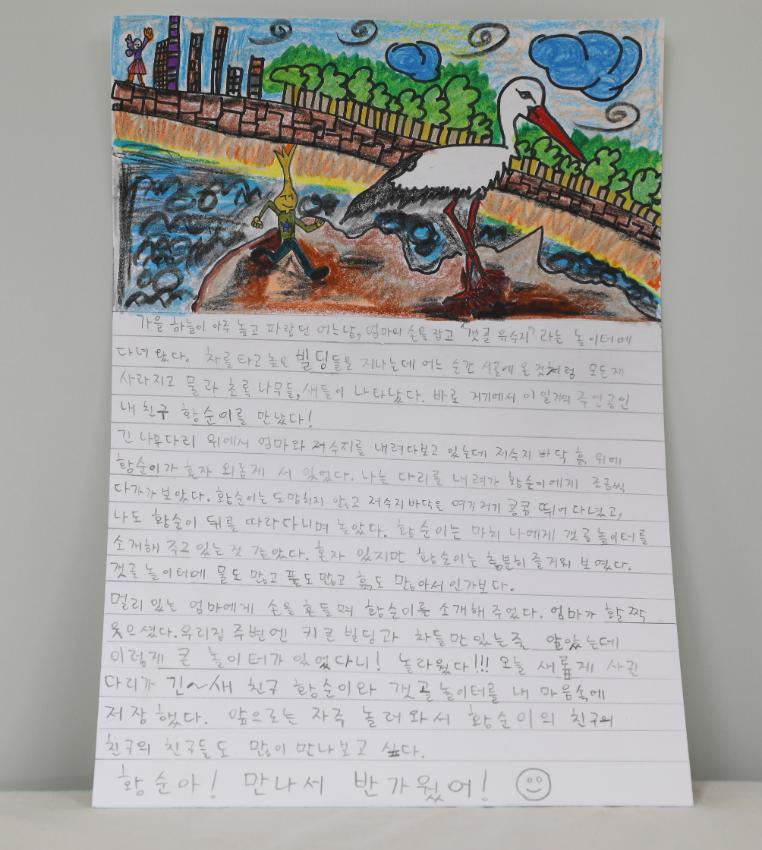 가을 하늘이 아주 높고 파랗던 어느날, 엄마의 손을 잡고 "갯골 유수지" 라는 놀이터에
다녀 왔다. 차를 타고 높은 빌딩들을 지나는데 어느 순간 시골에 온 것처럼 모든게
사라지고 물과 초록 나무들, 새들이 나타났다. 바로 거기에서 이 일기의 주인공인
내 친구 황순이를 만났다!
긴 나무다리 위에서 엄마와 저수지를 내려다보고 있는데 저수지 바닥 흙 위에
황순이가 혼자 외롭게 서 있었다. 나는 다리를 내려가 황순이에게 조금씩
다가가 보았다. 황순이는 도망치지 않고 저수지바닥을 여기저기 콩콩 뛰어 다녔고,
나도 황순이 뒤를 따라다니며 놀았다. 황순이는 마치 나에게 갯골놀이터를
소개해 주고 있는 것 같았다. 혼자 있지만 황순이는 충분히 즐거워 보였다.
갯골 놀이터에 물도 많고 풀도 많고 흙도 많아서 인가보다.
멀리 있는 엄마에게 손을 흔들며 황순이를 소개해 주었다. 엄마가 활짝
웃으셨다. 우리집 주변엔 키큰 빌딩과 차들만 있는줄 알았는데
이렇게 큰 놀이터가 있었다니! 놀라웠다!!! 오늘 새롭게 사귄
다리가 긴~새 친구 황순이와 갯골놀이터를 내 마음속에
저장했다. 앞으로는 자주 놀러와서 황순이의 친구의
친구의 친구들도 많이 만나보고 싶다.
황순아! 만나서 반가웠어!